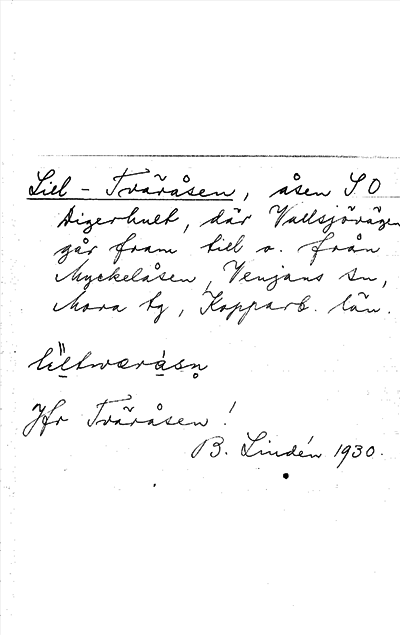 Lill-Tväråsen, åsen SO
Digerhult, där Vallsjövägen
går fram till o. från
Myckelåsen, Venjans sn,
Mora tg, Kopparb. län.
Jfr Tväråsen!
B. Lindén 1930.